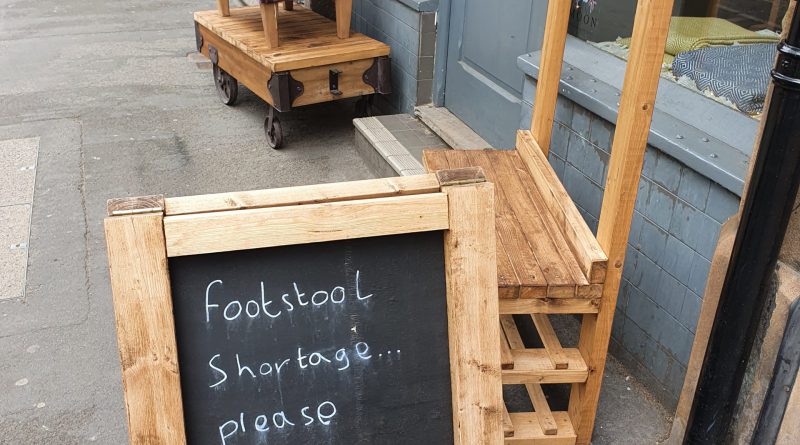 OON
Footstool
Shortage...
please